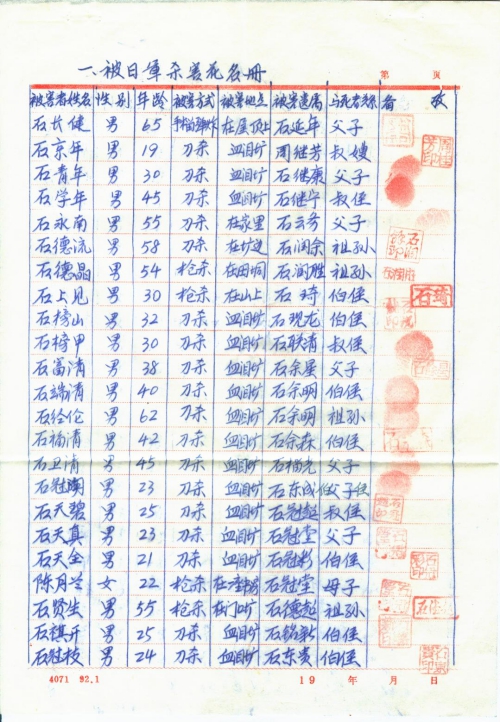 一、被日军杀害死者名册
第 页
被害者姓名 性别 年龄 被害方式 被害地点 被害遗属 与死者系 盖 章
石长健 男 65 在屋顶上 石延年 父子
石京年 男 19 刀杀 血泪圹 周继芳 叔嫂
石青年 男 30 刀杀 血泪圹 石继康 父子
石学年 男 45 刀杀 血泪圹 石继宁 叔侄
石永南 男 55 刀杀 在家里 石云务 父子
石德流 男 58 刀杀 石润余 祖孙
石德晶 男 54 枪杀 在田垌 石润胜 祖孙
石上见 男 30 枪杀 在山上 石琦 伯侄 石琦
石榜山 男 32 刀杀 血泪圹 石现龙 伯侄
石榜甲 男 30 刀杀 血泪圹 石联清 叔侄
石富清 男 38 刀杀 血泪圹 石余星 父子
石端清 男 40 刀杀 血泪圹 石余明 伯侄
石经伦 男 62 刀杀 血泪圹 石余明 祖孙
石榆清 男 42 刀杀 血泪圹 石余森 伯侄
石卫清 男 45 刀杀 血泪圹 父子
男 23 刀杀 血泪圹 石东成
石天碧 男 25 刀杀 血泪圹 石冠超 叔侄
石天真 男 23 刀杀 血泪圹 石冠堂 父子
石天全 男 21 刀杀 血泪圹 石冠彩 伯侄
陈月兰 女 22 枪杀 石冠堂 母子
石贤生 男 55 枪杀 在门口圹 石德超 祖孙
石祺开 男 25 刀杀 血泪圹 石铭新 伯侄
石冠枝 男 24 刀杀 血泪圹 石东贵 伯侄
4071 92.1 19 年 月 日